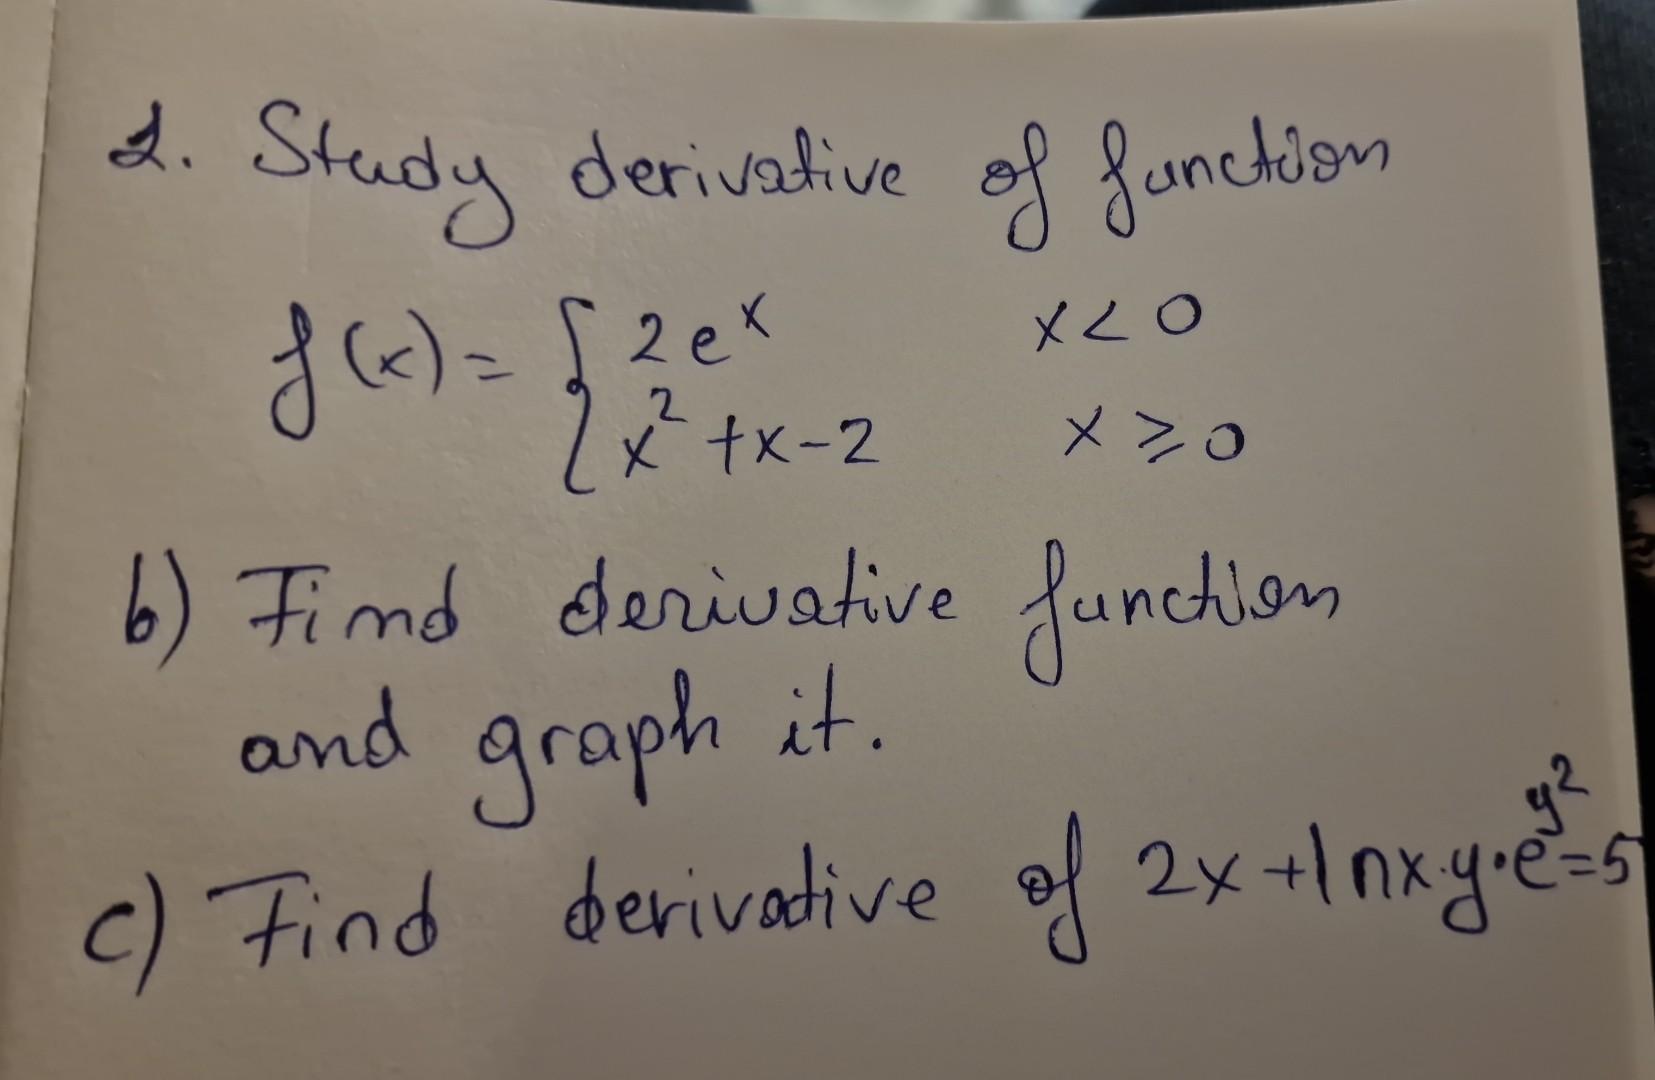 1. Study derivative of function
f(x) = { 2e^x x < 0
x² + x - 2 x ⩾ 0
b) Find derivative function
and graph it.
c) Find derivative of 2x + ln x·y·e^y² = 5